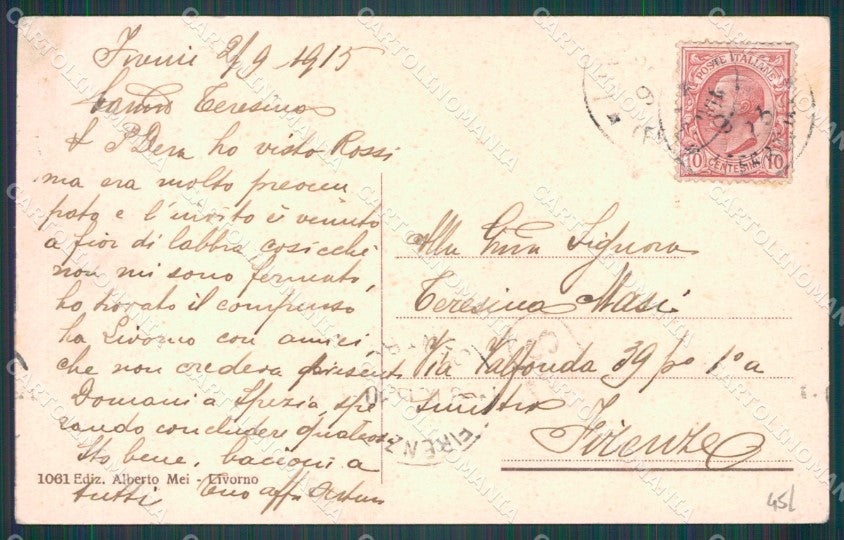 2/9 1915
Teresina
A P Dera ho visto Rossi
ma era molto preoccu
pato e l'invito è venuto
a fior di labbra, cosicchè
non mi sono fermato,
ho trovato il compenso
ha Livorno con amici,
che non credevo presenti
Domani a Spezia, spe
rando concludere qualcosa
Sto bene. bacioni a
tutti Tuo aff
1061 Ediz. Alberto Mei - Livorno
Alla Signora
Teresina Masi
Via Valfonda 39 po 1o a
sinistra
Firenze
POSTE ITALIANE
10 CENTESIMI 10
FIRENZE
45/
CARTOLINOMANIA